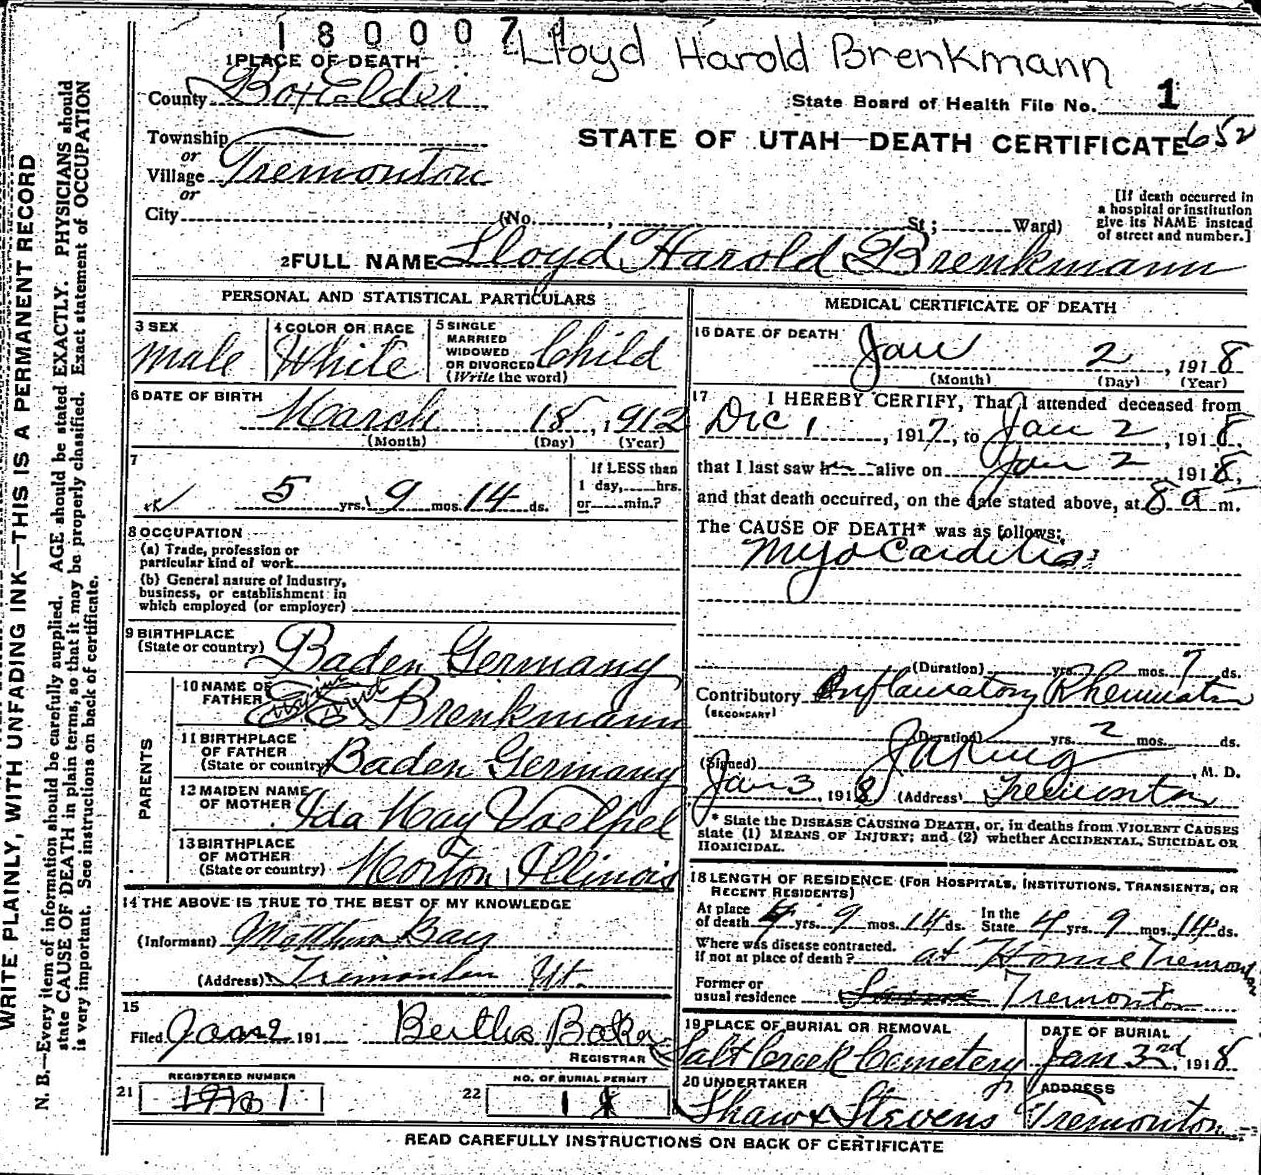 1800071
Lloyd Harold Brenkmann
1 PLACE OF DEATH
County Box Elder
State Board of Health File No. 1
652
Township
or
STATE OF UTAH—DEATH CERTIFICATE
Village Tremonton
or
City (No. , St; Ward)
[If death occurred in a hospital or institution give its NAME instead of street and number.]
2 FULL NAME Lloyd Harold Brenkmann
PERSONAL AND STATISTICAL PARTICULARS
3 SEX
Male
4 COLOR OR RACE
White
5 SINGLE
MARRIED
WIDOWED
OR DIVORCED
(Write the word)
Child
6 DATE OF BIRTH
March 18, 1912
(Month) (Day) (Year)
7
5 yrs. 9 mos. 14 ds.
If LESS than
1 day, hrs.
or min.?
8 OCCUPATION
(a) Trade, profession or
particular kind of work
(b) General nature of Industry,
business, or establishment in
which employed (or employer)
9 BIRTHPLACE
(State or country) Baden Germany
PARENTS
10 NAME OF
FATHER Brenkmann
11 BIRTHPLACE
OF FATHER
(State or country) Baden Germany
12 MAIDEN NAME
OF MOTHER Ida May Voelpel
13 BIRTHPLACE
OF MOTHER
(State or country) Morton, Illinois
14 THE ABOVE IS TRUE TO THE BEST OF MY KNOWLEDGE
(Informant)
(Address) Tremonton Ut.
15
Filed Jan 2 191 Bertha
REGISTRAR
REGISTERED NUMBER
21
NO. OF BURIAL PERMIT
22 1
MEDICAL CERTIFICATE OF DEATH
16 DATE OF DEATH
Jan 2, 1918
(Month) (Day) (Year)
17 I HEREBY CERTIFY, That I attended deceased from
Dec 1, 1917, to Jan 2, 1918,
that I last saw h alive on Jan 2 1918,
and that death occurred, on the date stated above, at 8 a m.
The CAUSE OF DEATH* was as follows:
Myo Carditis
(Duration) yrs. mos. 7 ds.
Contributory Inflamatory Rheumatism
(SECONDARY)
(Duration) yrs. 2 mos. ds.
(Signed) , M. D.
Jan 3, 1918 (Address) Tremonton
* State the DISEASE CAUSING DEATH, or, in deaths from VIOLENT CAUSES
state (1) MEANS OF INJURY; and (2) whether ACCIDENTAL, SUICIDAL OR
HOMICIDAL.
18 LENGTH OF RESIDENCE (FOR HOSPITALS, INSTITUTIONS, TRANSIENTS, OR
RECENT RESIDENTS)
At place
of death 4 yrs. 9 mos. 14 ds. In the
State 4 yrs. 9 mos. 14 ds.
Where was disease contracted.
if not at place of death? at Home Tremonton
Former or
usual residence Tremonton
19 PLACE OF BURIAL OR REMOVAL
Salt Creek Cemetery
DATE OF BURIAL
Jan 3rd, 1918
20 UNDERTAKER
Shaw & Stevens
ADDRESS
Tremonton
READ CAREFULLY INSTRUCTIONS ON BACK OF CERTIFICATE
WRITE PLAINLY, WITH UNFADING INK—THIS IS A PERMANENT RECORD
N. B.—Every item of information should be carefully supplied. AGE should be stated EXACTLY. PHYSICIANS should
state CAUSE OF DEATH in plain terms, so that it may be properly classified. Exact statement of OCCUPATION
is very important. See instructions on back of certificate.